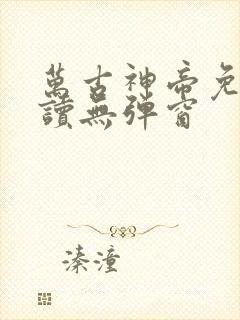 萬古神帝免
讀無彈窗
溱潼